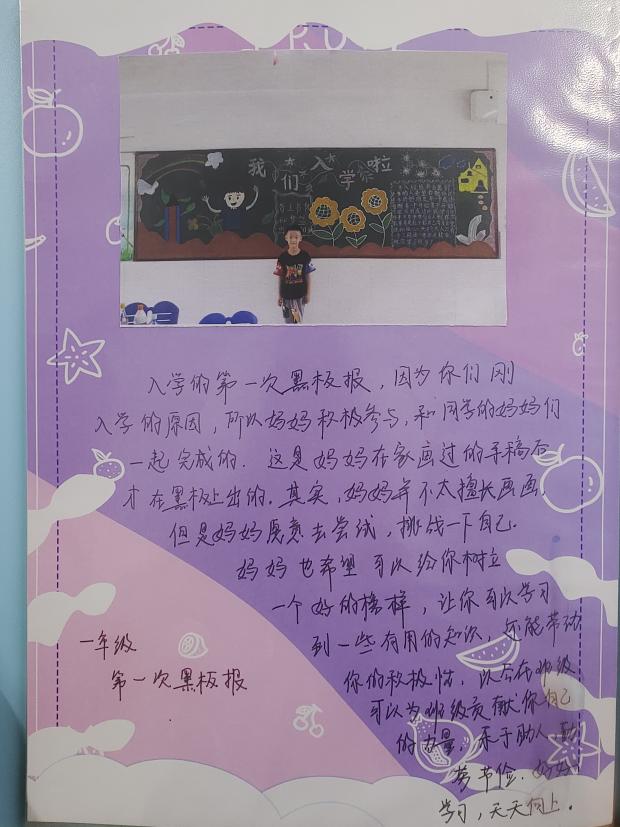 我们入学啦
入学的第一次黑板报，因为你们刚
入学的原因，所以妈妈积极参与，和同学的妈妈们
一起完成的．这是妈妈在家画过的手稿后
才在黑板上出的。其实，妈妈并不太擅长画画，
但是妈妈愿意去尝试，挑战一下自己．
妈妈也希望可以给你树立
一个好的榜样，让你可以学习
到一些有用的知识，还能带动
你的积极性，以后在班级
可以为班级贡献你自己
的力量，乐于助人，勤
劳节俭．好好
学习，天天向上。
一年级
第一次黑板报